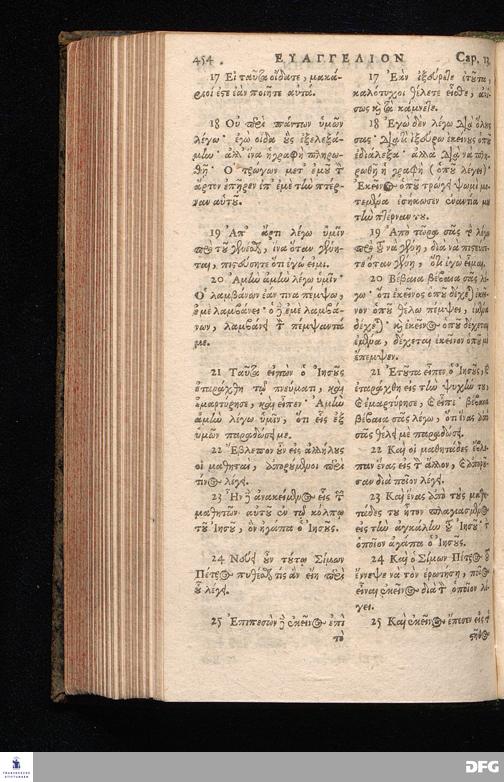 454 ΕΥΑΓΓΕΛΙΟΝ Cap. 13
17 Εἰ ταῦτα οἴδατε, μακά-
ριοί ἐστε ἐὰν ποιῆτε αὐτά.
18 Οὐ περὶ πάντων ὑμῶν
λέγω· ἐγὼ οἶδα οὓς ἐξελεξά-
μην· ἀλλ' ἵνα ἡ γραφὴ πληρω-
θῇ· Ὁ τρώγων μετ' ἐμοῦ τὸν
ἄρτον ἐπῆρεν ἐπ' ἐμὲ τὴν πτέρ-
ναν αὐτοῦ.
19 Ἀπ' ἄρτι λέγω ὑμῖν
πρὸ τοῦ γενέσθαι, ἵνα ὅταν γένη-
ται, πιστεύσητε ὅτι ἐγώ εἰμι.
20 Ἀμὴν ἀμὴν λέγω ὑμῖν·
Ὁ λαμβάνων ἐάν τινα πέμψω,
ἐμὲ λαμβάνει· ὁ δὲ ἐμὲ λαμβά-
νων, λαμβάνει τὸν πέμψαντά
με.
21 Ταῦτα εἰπὼν ὁ Ἰησοῦς
ἐταράχθη τῷ πνεύματι, καὶ
ἐμαρτύρησε, καὶ εἶπεν· Ἀμὴν
ἀμὴν λέγω ὑμῖν, ὅτι εἷς ἐξ
ὑμῶν παραδώσει με.
22 Ἔβλεπον οὖν εἰς ἀλλήλους
οἱ μαθηταὶ, ἀπορούμενοι περὶ
τίνος λέγει.
23 Ἦν δὲ ἀνακείμενος εἷς τῶν
μαθητῶν αὐτοῦ ἐν τῷ κόλπῳ
τοῦ Ἰησοῦ, ὃν ἠγάπα ὁ Ἰησοῦς.
24 Νεύει οὖν τούτῳ Σίμων
Πέτρος πυθέσθαι τίς ἂν εἴη περὶ
οὗ λέγει.
25 Ἐπιπεσὼν δὲ ἐκεῖνος ἐπὶ
τὸ
17 Ἐὰν ἐξεύρετε ἐτοῦτα,
καλότυχοι θέλετε εἶσθε,
σως καὶ τὰ κάμνετε.
18 Ἐγὼ δὲν λέγω διὰ ὅλους
σας· διατὶ ἐξεύρω ἐκείνους ὁποῦ
ἐδιάλεξα· ἀλλὰ διὰ νὰ πλη-
ρωθῇ ἡ γραφὴ (ὁποῦ λέγει)
Ἐκεῖνος ὁποῦ τρώγει ψωμὶ με-
τεμένα ἐσήκωσεν ἐναντία μου
τὴν πτέρναν του.
19 Ἀπὸ τώρα σᾶς τὸ λέγω
πρὸ τοῦ νὰ γένῃ, διὰ νὰ πιστεύε-
τε ὅταν γένῃ, ὅτι ἐγὼ εἶμαι.
20 Βέβαια βέβαια σᾶς λέ-
γω· ὅτι ἐκεῖνος ὁποῦ δέχεται ἐκεῖ-
νον ὁποῦ θέλω πέμψει, ἐμένα
δέχεται· καὶ ἐκεῖνος ὁποῦ δέχεται
ἐμένα, δέχεται ἐκεῖνον ὁποῦ μὲ
ἔπεμψεν.
21 Ἐτοῦτα εἶπεν ὁ Ἰησοῦς, καὶ
ἐταράχθη εἰς τὴν ψυχήν του,
καὶ ἐμαρτύρησε, καὶ εἶπε· βέβαια
βέβαια σᾶς λέγω, ὅτι ἕνας ἀπὸ
σᾶς θέλει μὲ παραδώσῃ.
22 Καὶ οἱ μαθητάδες ἐβλέ-
παν ἕνας εἰς τὸν ἄλλον, καὶ ἀπορε-
σαν διὰ ποῖον λέγει.
23 Καὶ ἕνας ἀπὸ τοὺς μαθη-
τάδες του ἦτον πλαγιασμένος
εἰς τὴν ἀγκάλην τοῦ Ἰησοῦ· τὸν
ὁποῖον ἀγάπα ὁ Ἰησοῦς.
24 Καὶ ὁ Σίμων Πέτρος τοῦ
ἔννεψε νὰ τὸν ἐρωτήσῃ, ποῖος
εἶναι ἐκεῖνος διὰ τὸν ὁποῖον λέ-
γει.
25 Καὶ ἐκεῖνος ἔπεσεν εἰς τὸ
στῆθος
DFG